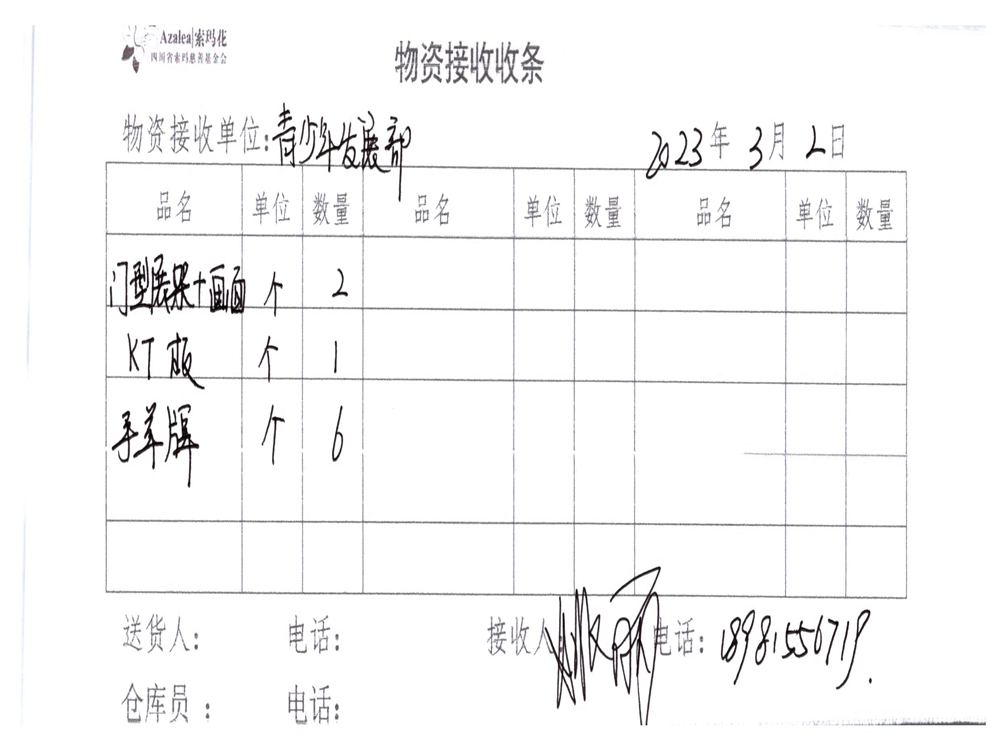 Azalea|索玛花
四川省索玛慈善基金会
物资接收收条
物资接收单位:青少年发展部 2023年3月2日
品名 单位 数量 品名 单位 数量 品名 单位 数量
门型展架+画面 个 2
KT板 个 1
手举牌 个 6
送货人: 电话: 接收人 电话: 18981556719.
仓库员 : 电话: